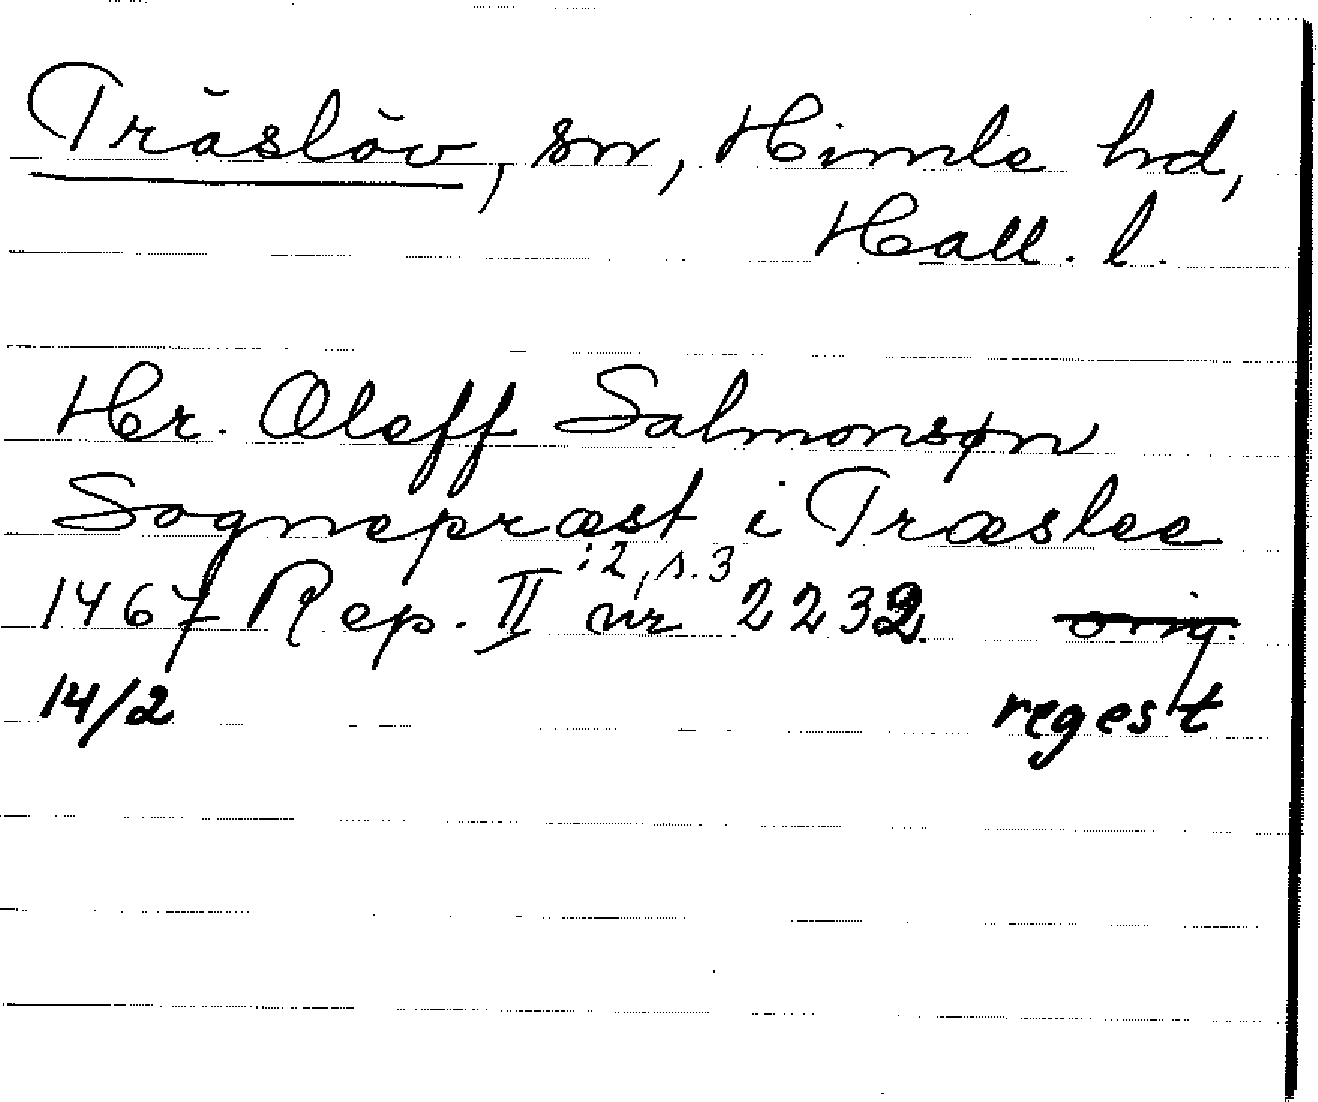 Träslöv, sn, Himle hd,
Hall. l.
Hr. Oleff Salmonsøn
Sognepræst i Træslee
i 2, s. 3
1467 Rep. II nr 2232. orig.
14/2 regest